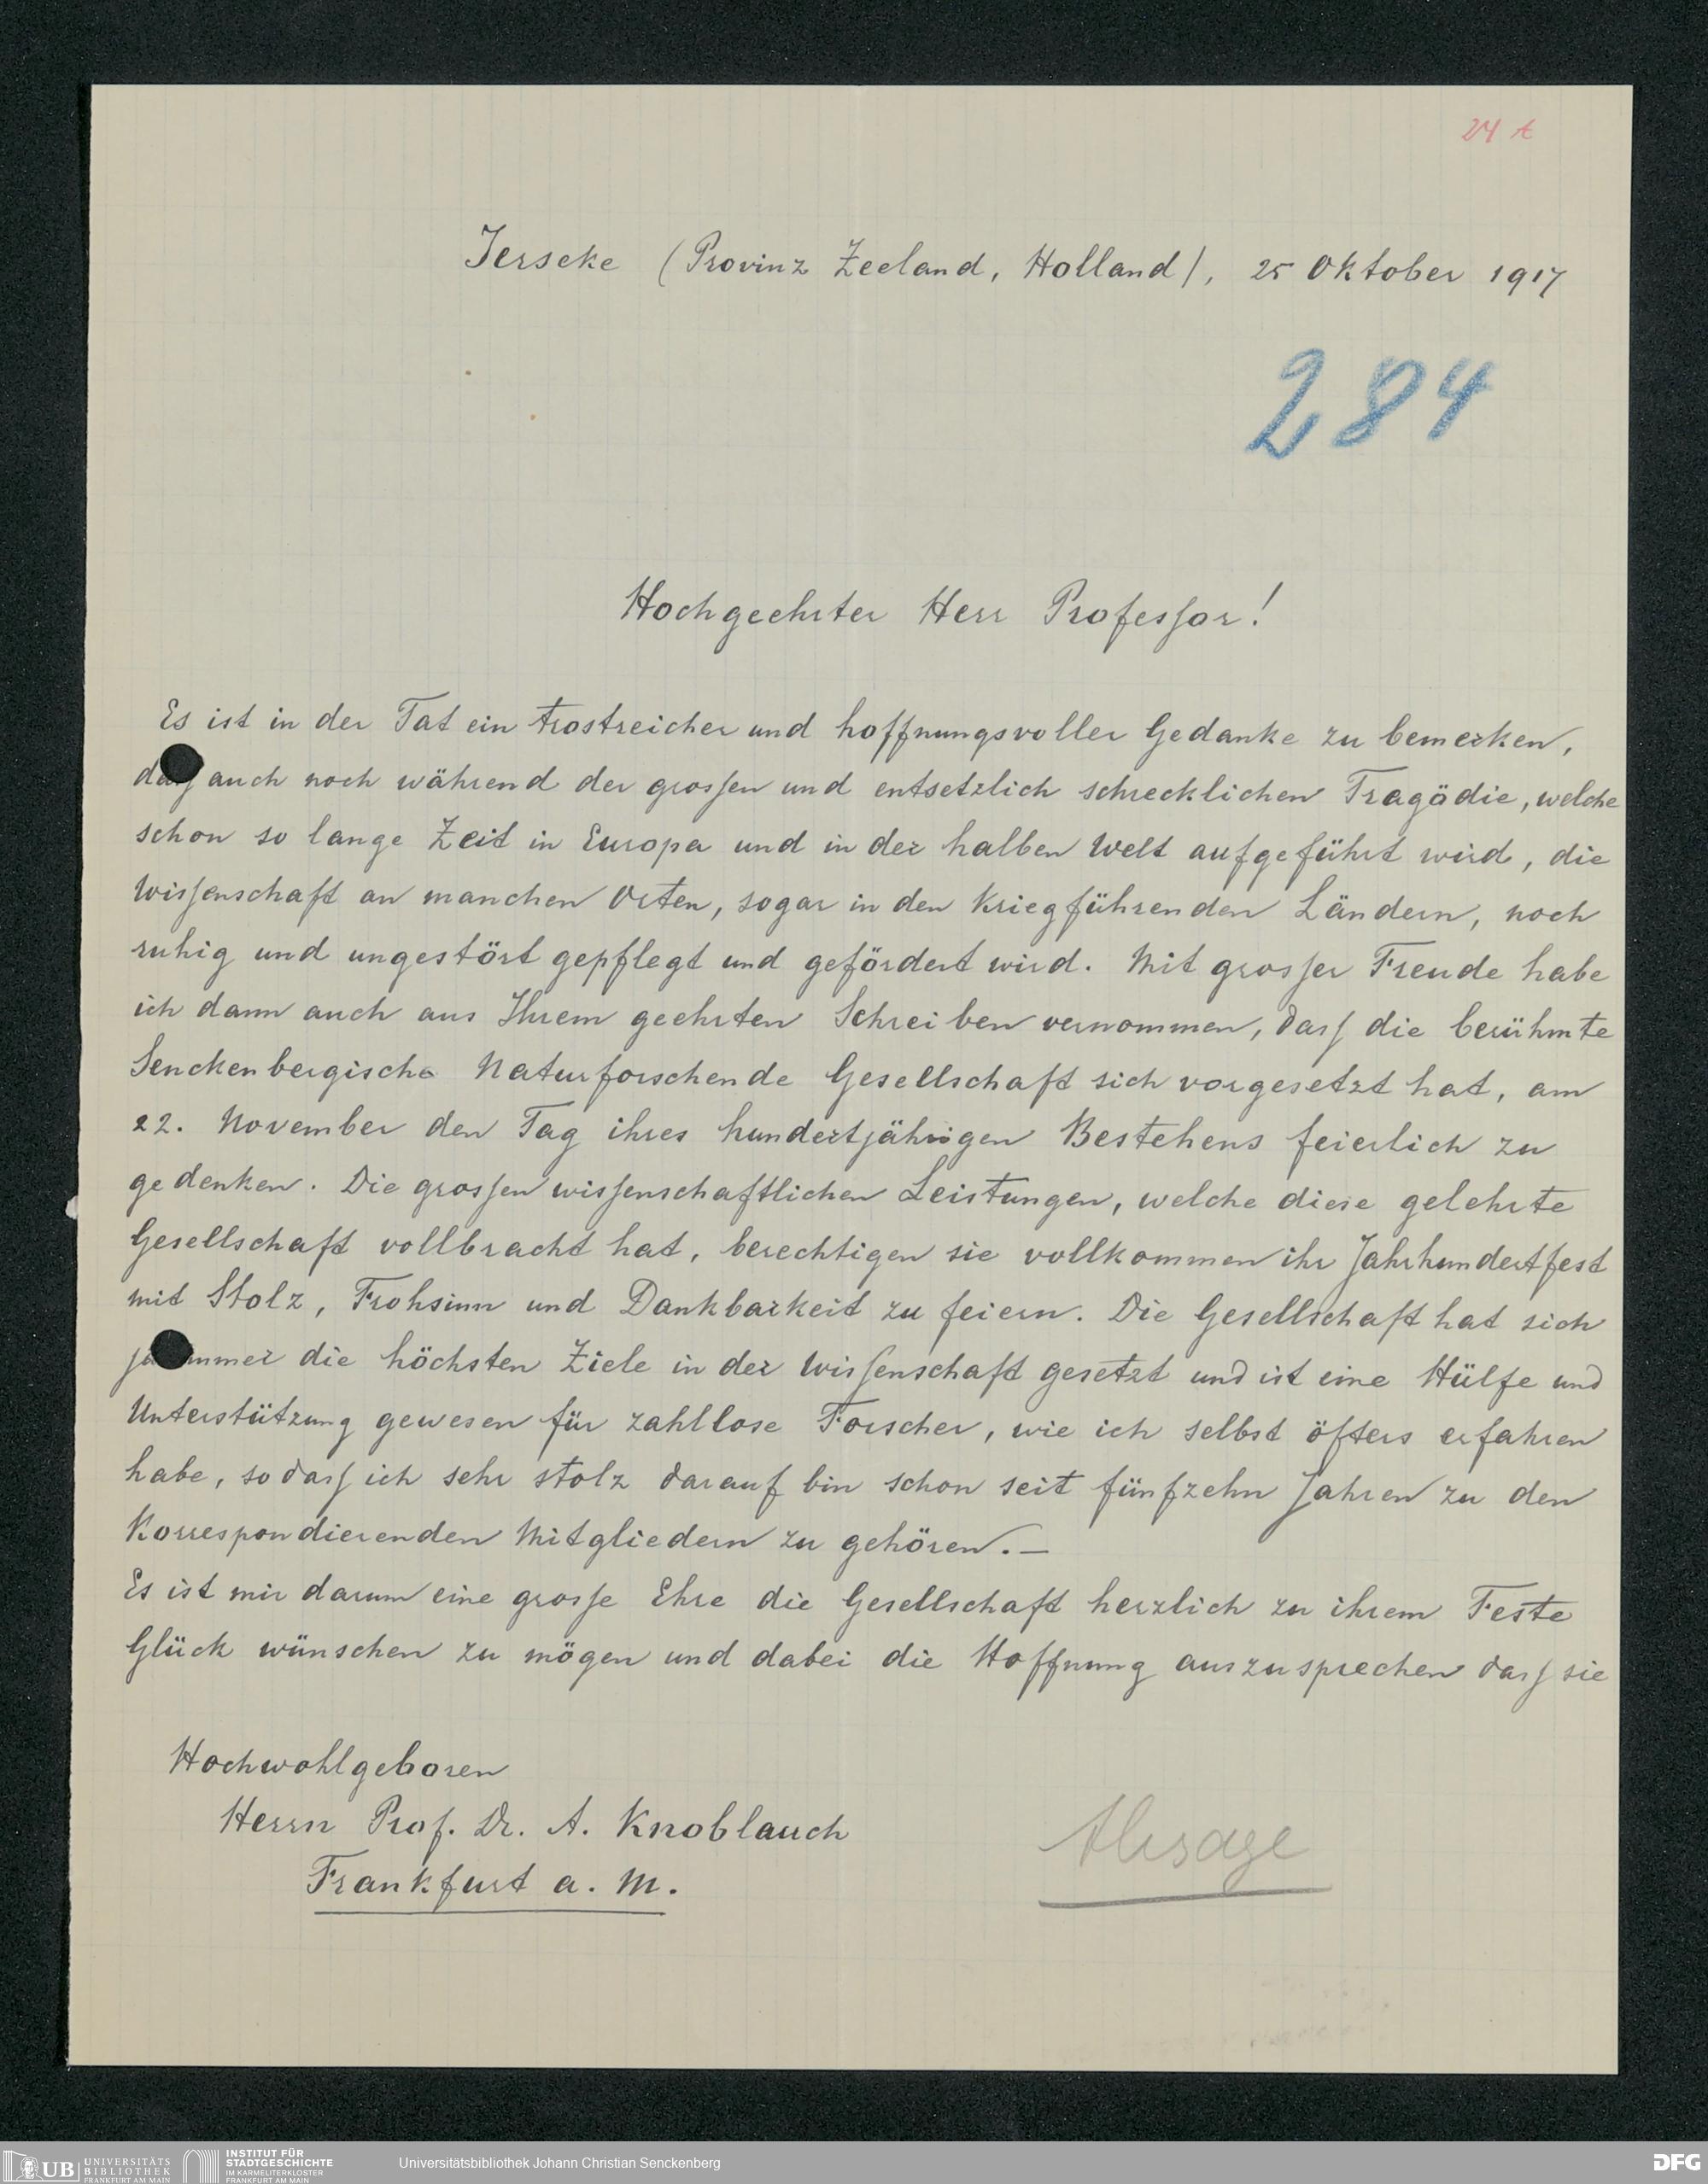 24 A
Jerseke (Provinz Zeeland, Holland), 25 Oktober 1917
284
Hochgeehrter Herr Professor!
Es ist in der Tat ein trostreicher und hoffnungsvoller Gedanke zu bemerken,
dass auch noch während der grossen und entsetzlich schrecklichen Tragödie, welche
schon so lange Zeit in Europa und in der halben Welt aufgeführt wird, die
Wissenschaft an manchen Orten, sogar in den kriegführenden Ländern, noch
ruhig und ungestört gepflegt und gefördert wird. Mit grosser Freude habe
ich dann auch aus Ihrem geehrten Schreiben vernommen, dass die berühmte
Senckenbergische Naturforschende Gesellschaft sich vorgesetzt hat, am
22. November den Tag ihres hundertjährigen Bestehens feierlich zu
gedenken. Die grossen wissenschaftlichen Leistungen, welche diese gelehrte
Gesellschaft vollbracht hat, berechtigen sie vollkommen ihr Jahrhundertfest
mit Stolz, Frohsinn und Dankbarkeit zu feiern. Die Gesellschaft hat sich
ja immer die höchsten Ziele in der Wissenschaft gesetzt und ist eine Hülfe und
Unterstützung gewesen für zahllose Forscher, wie ich selbst öfters erfahren
habe, so dass ich sehr stolz darauf bin schon seit fünfzehn Jahren zu den
Korrespondierenden Mitgliedern zu gehören.—
Es ist mir darum eine grosse Ehre die Gesellschaft herzlich zu ihrem Feste
Glück wünschen zu mögen und dabei die Hoffnung auszusprechen dass sie
Hochwohlgeboren
Herrn Prof. Dr. A. Knoblauch
Frankfurt a. M.
Absage
UB UNIVERSITÄTS BIBLIOTHEK FRANKFURT AM MAIN
INSTITUT FÜR STADTGESCHICHTE IM KARMELITERKLOSTER FRANKFURT AM MAIN
Universitätsbibliothek Johann Christian Senckenberg
DFG